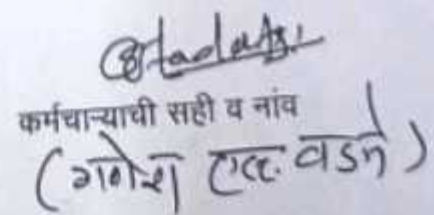 कर्मचाऱ्याची सही व नांव
(गणेश एल. वडने)